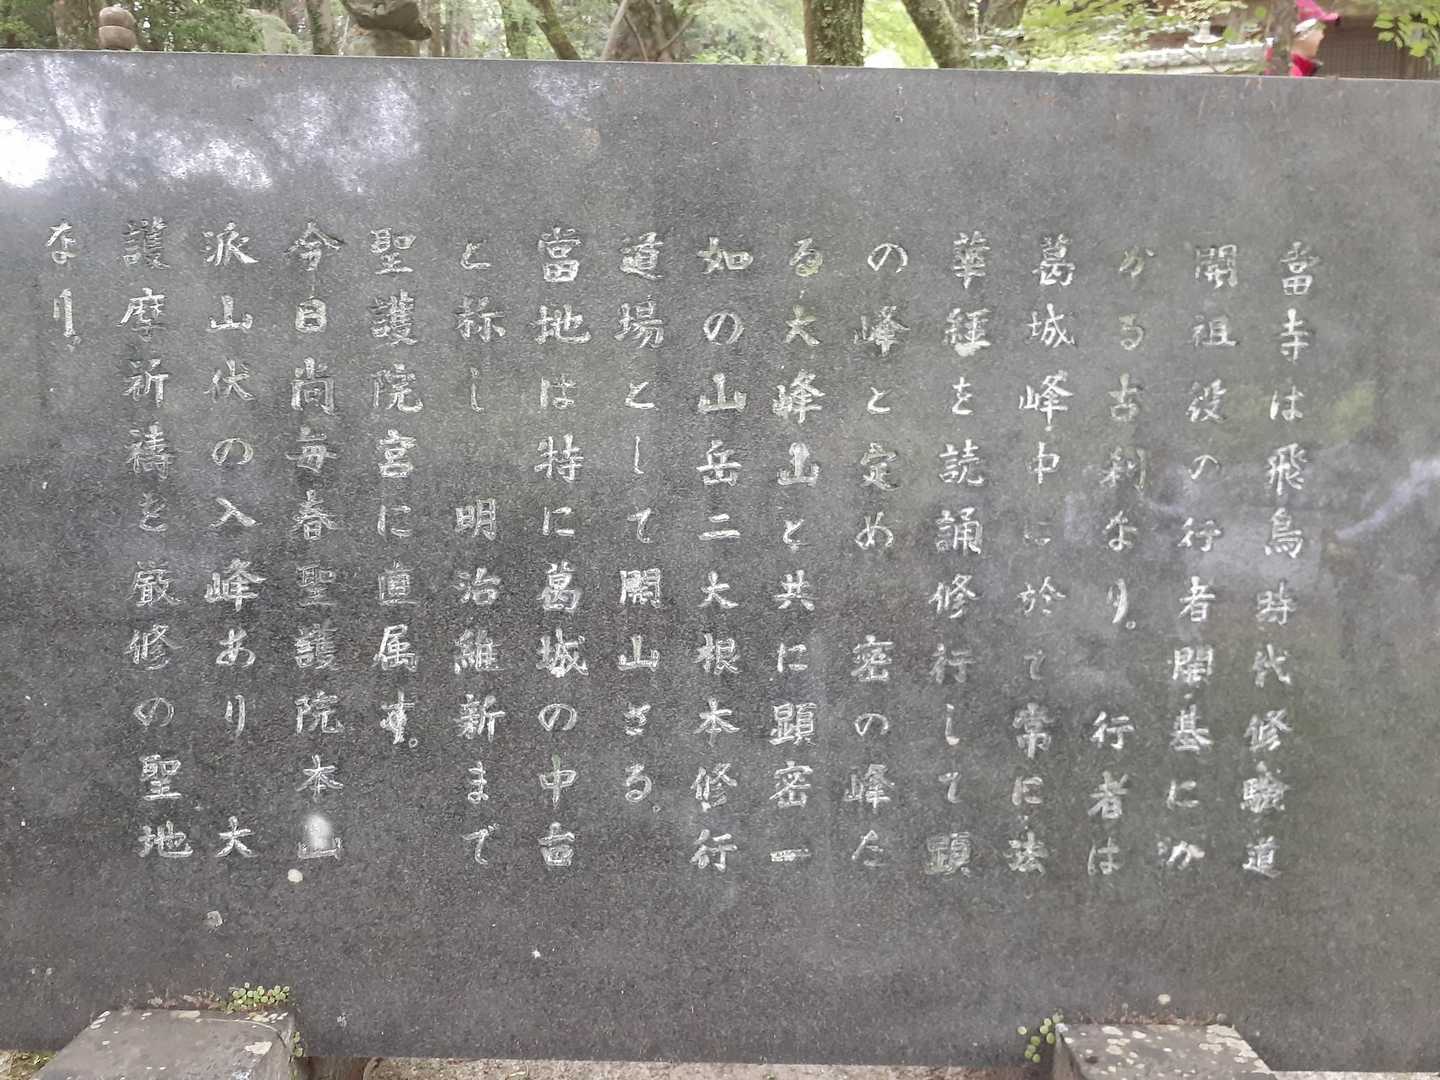 當寺は飛鳥時代修験道
開祖役の行者開基にか
かる古刹なり。行者は
葛城峰中に於て常に法
華経を読誦修行して顕
の峰と定め 密の峰た
る大峰山と共に顕密一
如の山岳二大根本修行
道場として開山さる。
當地は特に葛城の中台
と称し 明治維新まで
聖護院宮に直属す。
今日尚毎春聖護院本山
派山伏の入峰あり 大
護摩祈祷を厳修の聖地
なり。